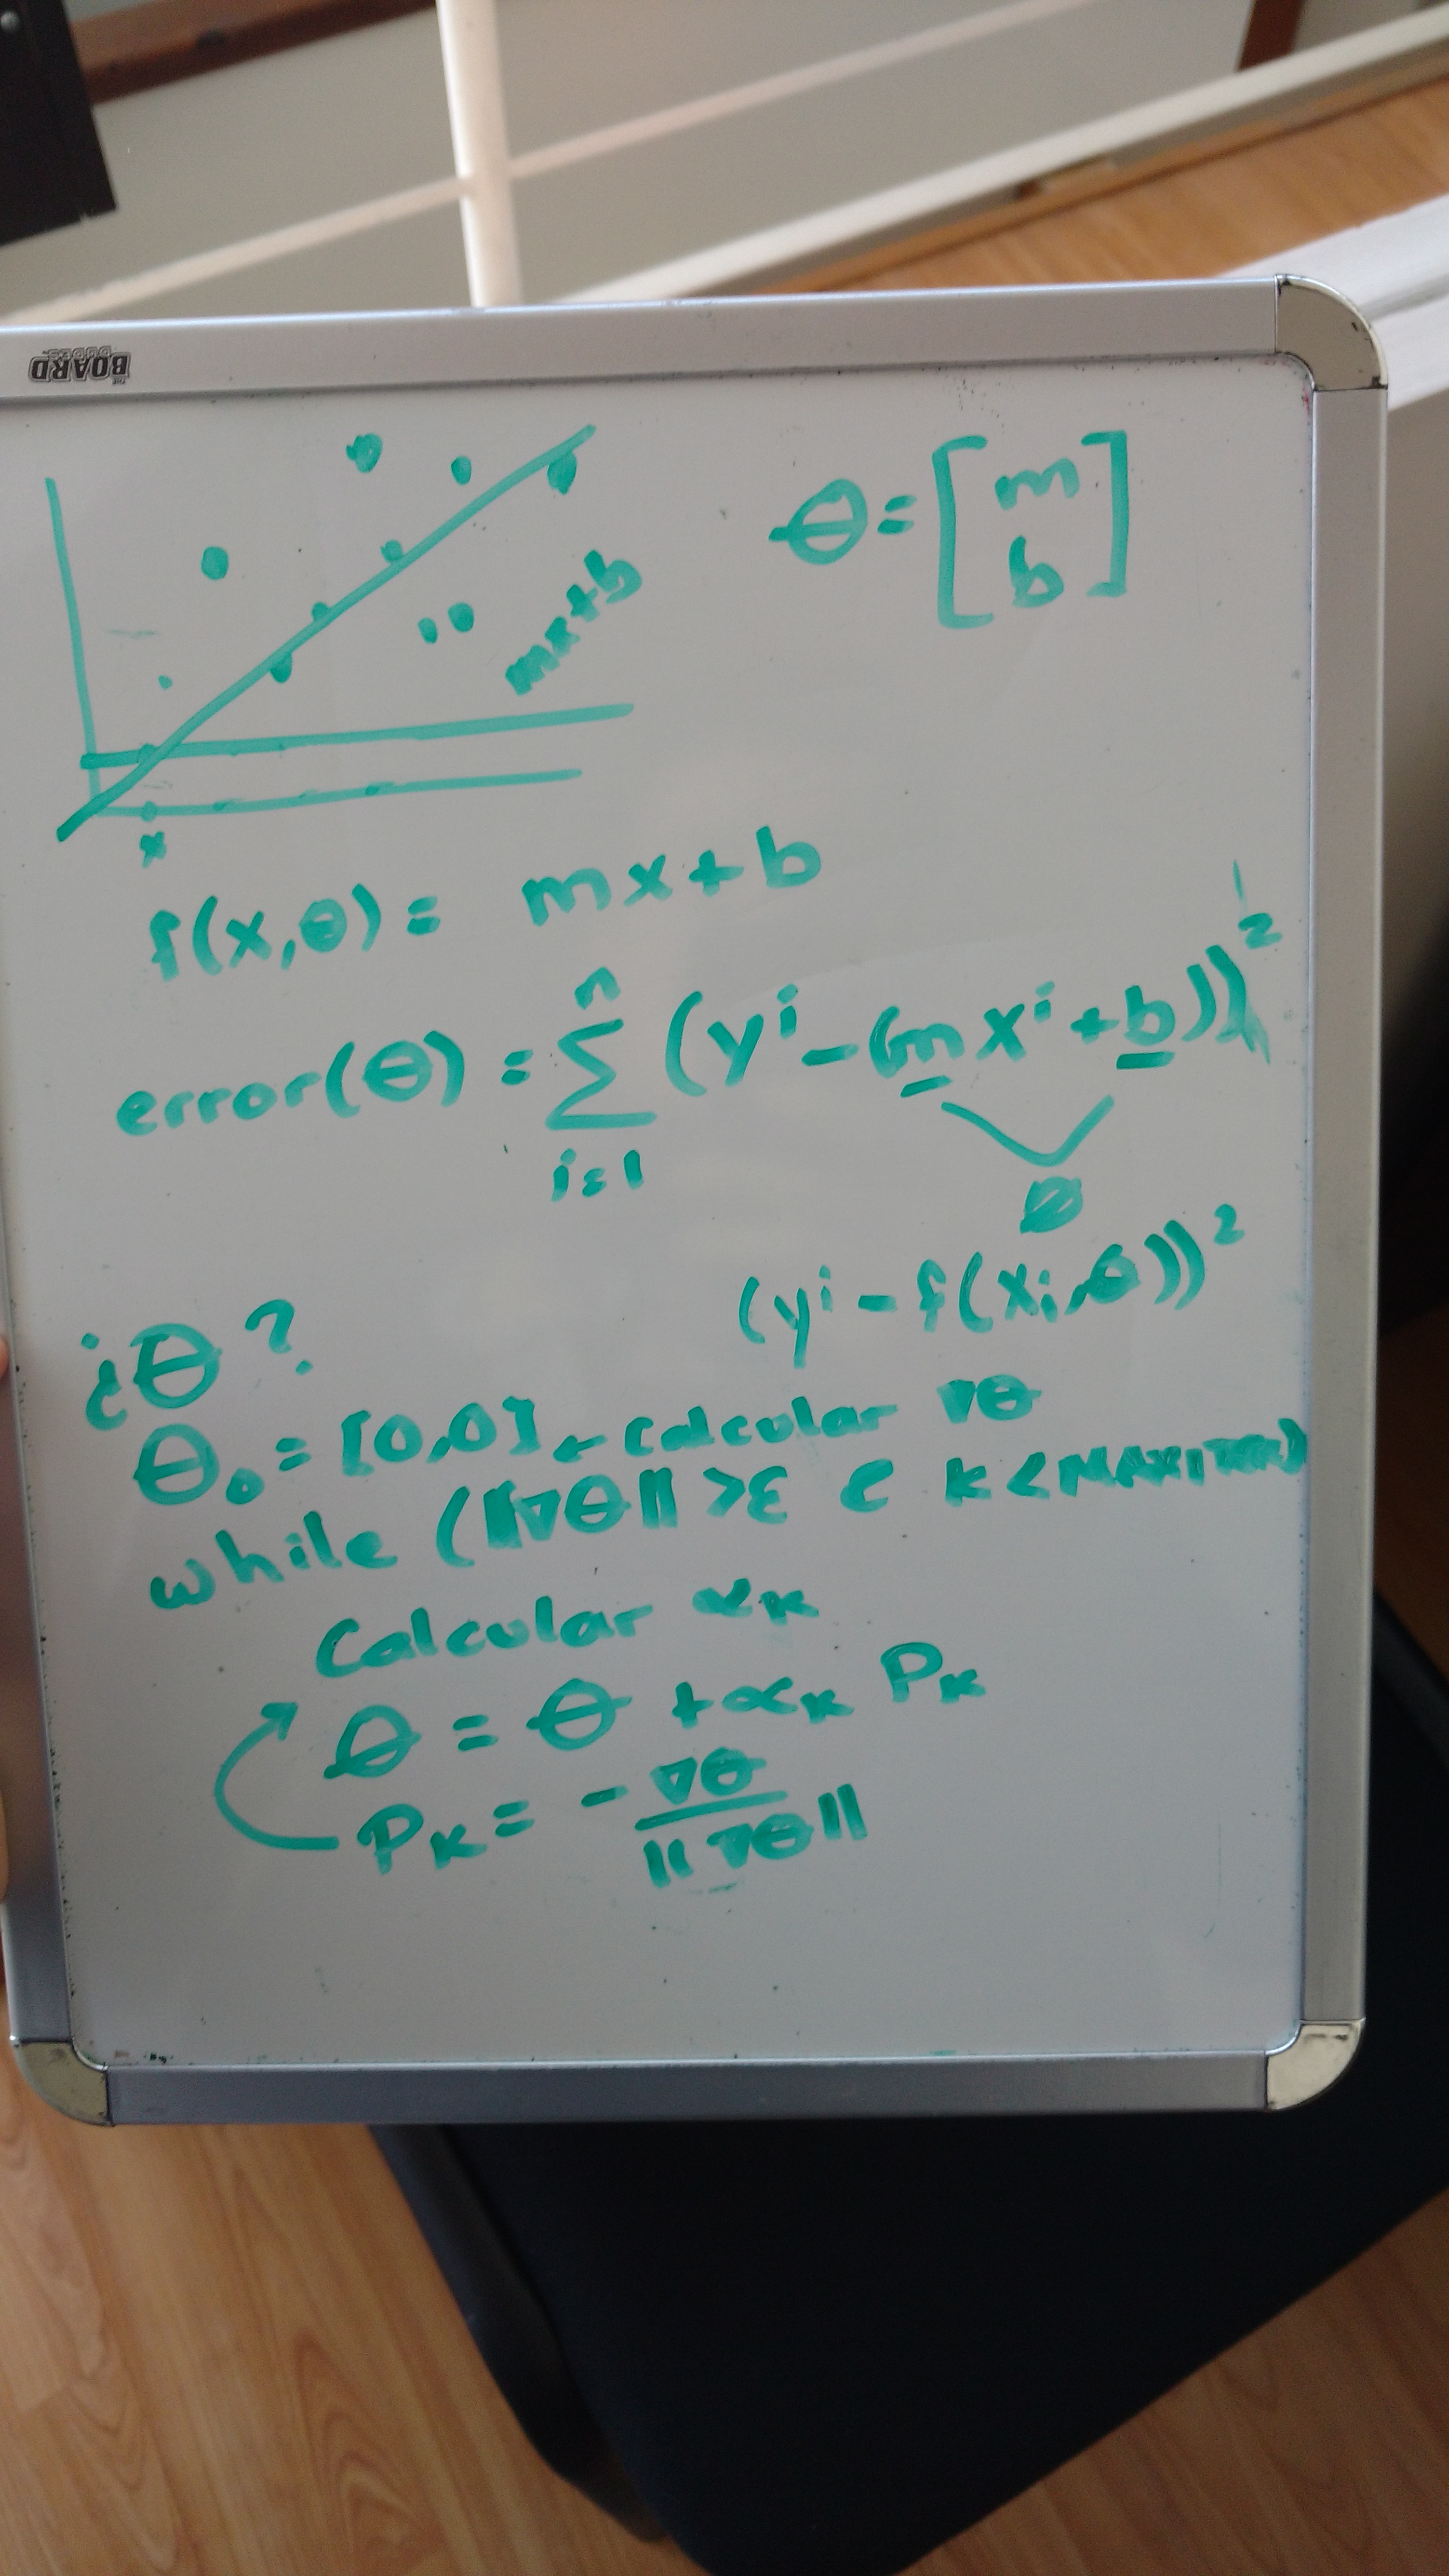 THE BOARD DUDES
θ = [m b]
mx+b
x
f(x,θ) = mx+b
error(θ) = Σ (yⁱ - (mxⁱ + b))²
n
i=1
θ
(yⁱ - f(xi,θ))²
¿θ?
θ₀ = [0,0] ← calcular ∇θ
while (||∇θ|| >ε & K < MAXITER)
Calcular αK
θ = θ + αK PK
PK = - ∇θ / ||∇θ||